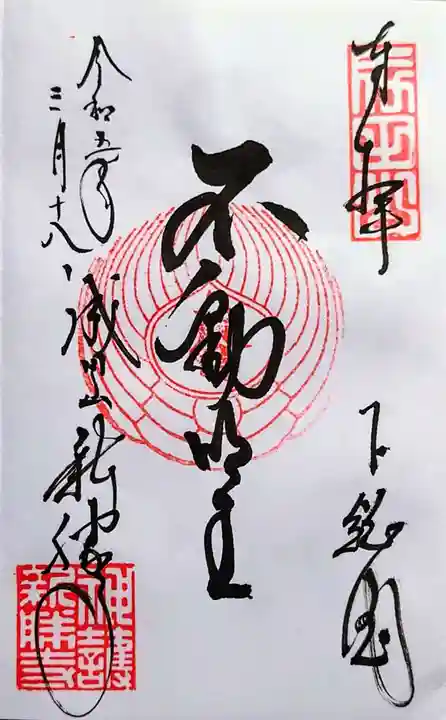 奉拝
下総国
不動明王
令和五年
三月十八日
成田山新勝寺